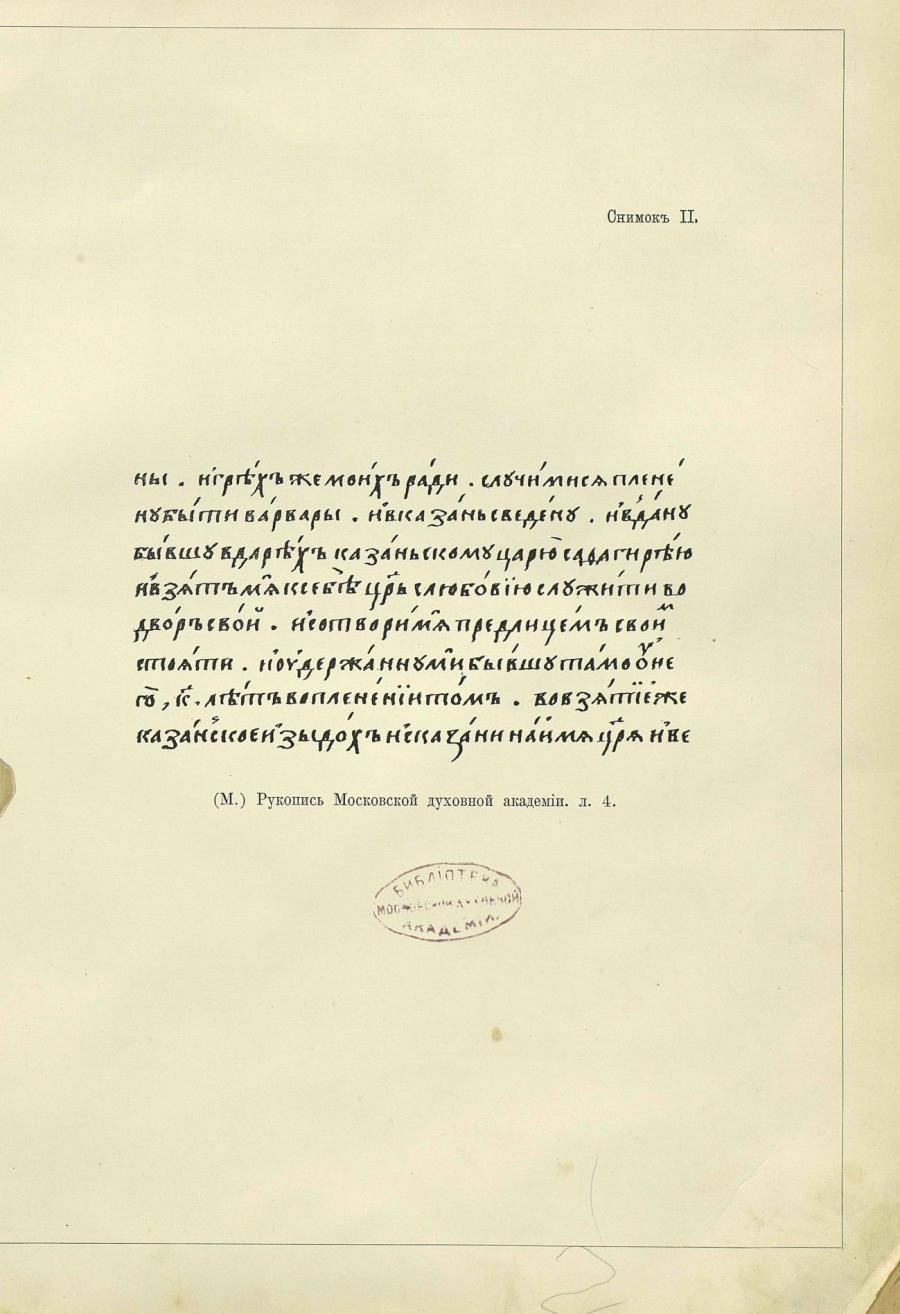 Снимокъ II.
ны . и грѣхъ же моихъ ради . случимися плене
ну быти варвары . и в казань сведену . и вдану
бывшу в дарѣхъ казаньскому царю сапагирѣю
и взятъ мѧ к себѣ црь с любовїю служити во
дворъ свой . и сотвори мѧ предлицемъ свои
стояти . и оудержанну ми бывшу тамо оу не
го , к҃ . лѣтъ во пленении томъ . во взятїе же
казанское изыдохъ ис казани на имя црѧ и ве
(М.) Рукопись Московской духовной академіи. л. 4.
БИБЛІОТЕКА
МОСКОВСКОЙ ДУХОВНОЙ
АКАДЕМІИ.